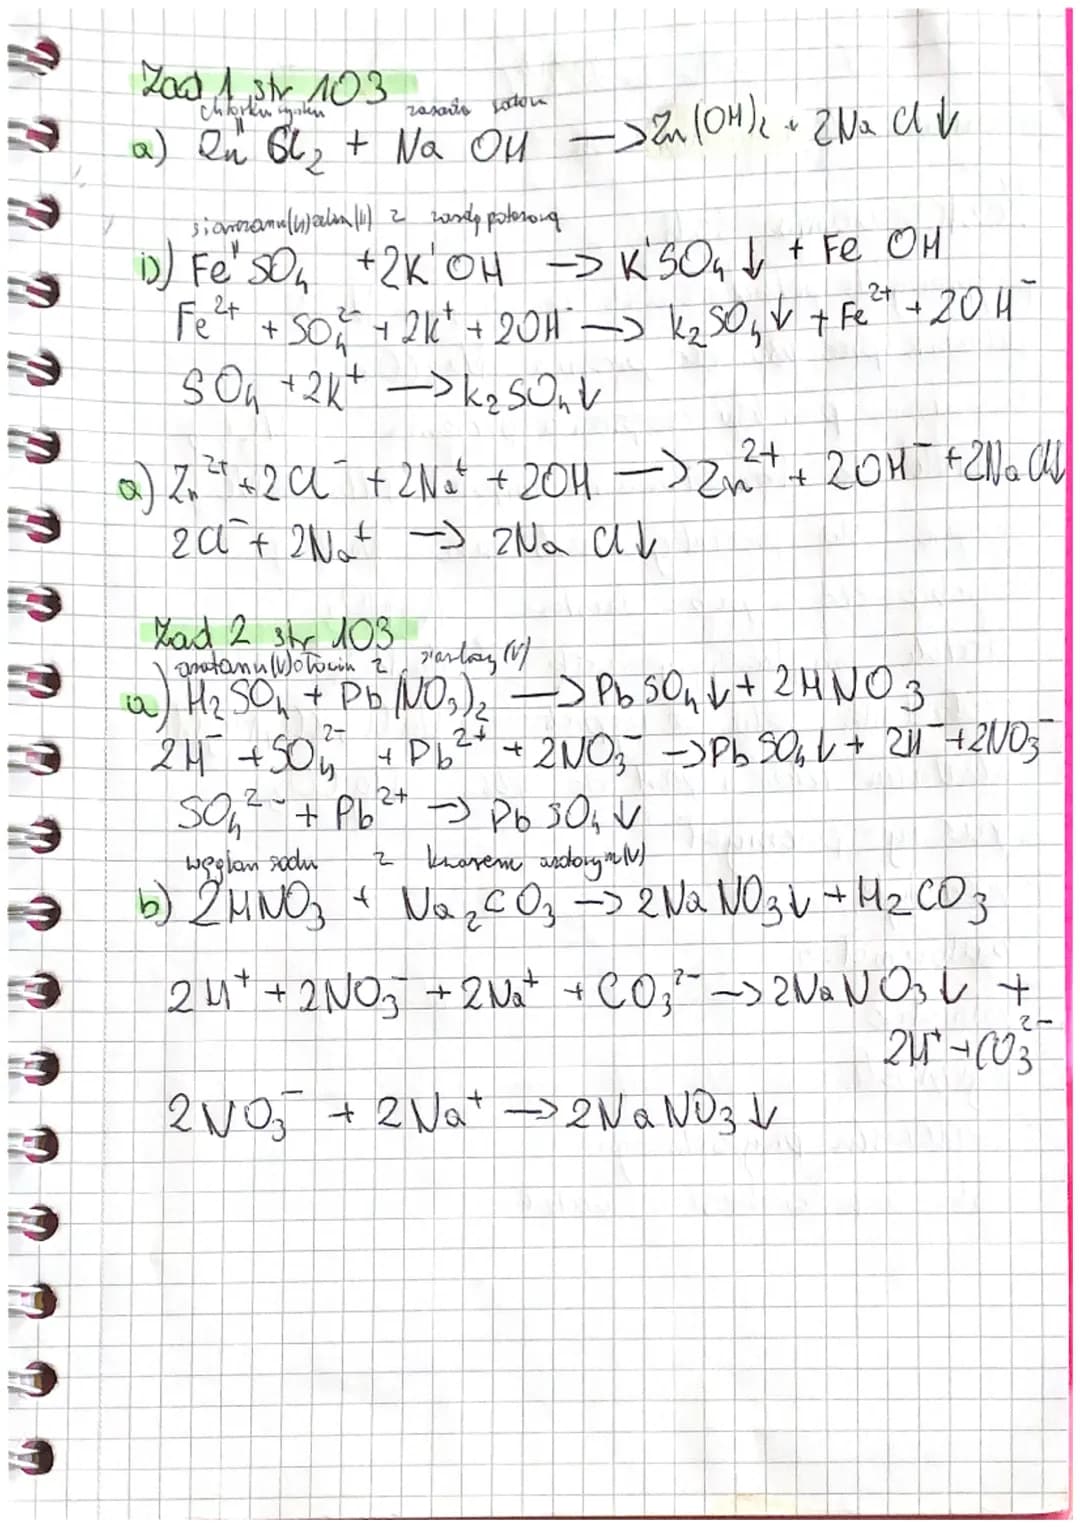 Zad 1 str 103
chlorku cynku zasada sodow
a) Zn^II Cl₂ + Na OH —> Zn(OH)₂ + 2Na Cl ↓
siarczanu(VI) żelaza(II) z zasadą potasową
b) Fe^II SO₄ + 2K^I OH —> K^I SO₄ ↓ + Fe OH
Fe²⁺ + SO₄²⁻ + 2K⁺ + 2OH⁻ —> K₂SO₄ ↓ + Fe²⁺ + 2OH⁻
SO₄ + 2K⁺ —> K₂SO₄ ↓
a) Zn²⁺ + 2Cl⁻ + 2Na⁺ + 2OH —> Zn²⁺ + 2OH⁻ + 2Na Cl↓
2Cl⁻ + 2Na⁺ —> 2Na Cl ↓
Zad 2 str 103
(V) ołowiu z (V)
a) H₂SO₄ + Pb(NO₃)₂ —> PbSO₄↓ + 2HNO₃
2H⁻ + SO₄²⁻ + Pb²⁺ + 2NO₃⁻ —> PbSO₄↓ + 2H⁻ + 2NO₃⁻
SO₄²⁻ + Pb²⁺ —> PbSO₄ ↓
węglan sodu z kwasem azotowym(V)
b) 2HNO₃ + Na₂CO₃ —> 2NaNO₃↓ + H₂CO₃
2H⁺ + 2NO₃⁻ + 2Na⁺ + CO₃²⁻ —> 2NaNO₃↓ +
2H⁺ + CO₃²⁻
2NO₃⁻ + 2Na⁺ —> 2NaNO₃ ↓